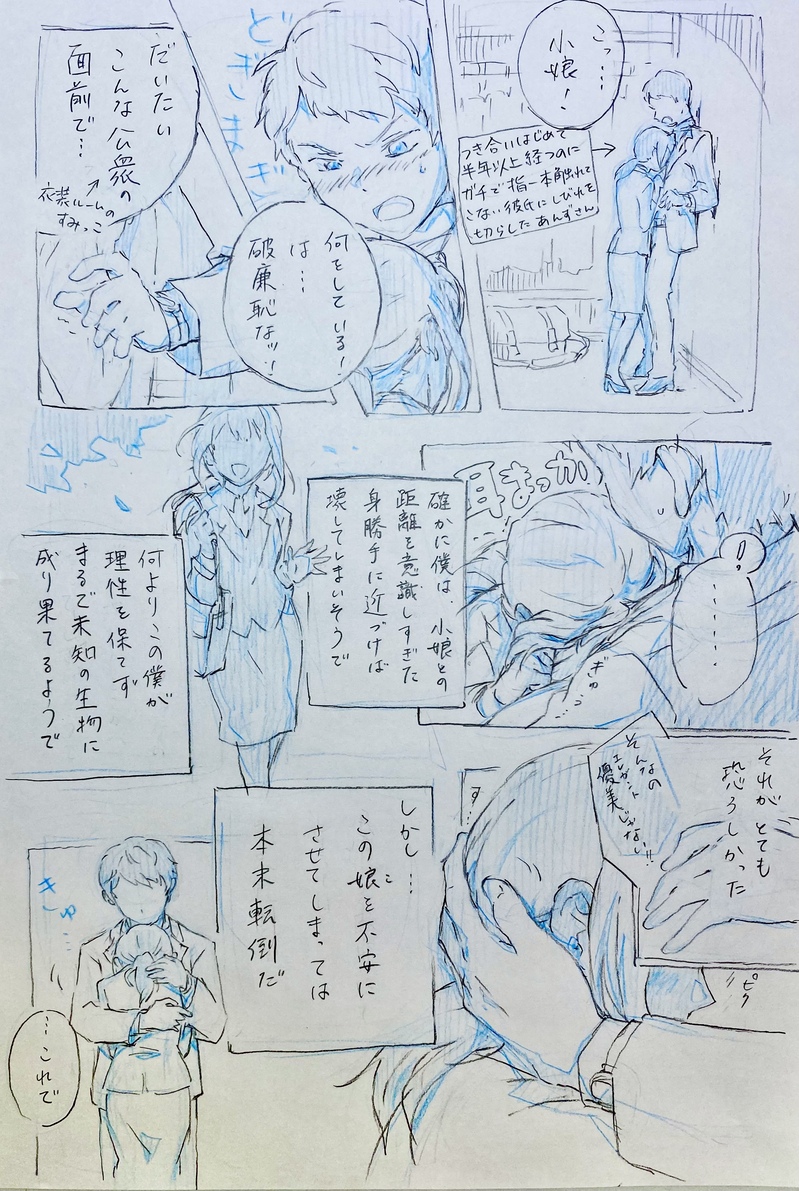 こっ…
小娘!
つき合いはじめて
半年以上経つのに
ガチで指一本触れて
こない彼氏にしびれを
切らしたあんずさん
どぎまぎ
何をしている!
は…
破廉恥なッ!
だいたい
こんな公衆の
面前で…
衣装ルームの
すみっこ
耳まっか
!?
………
ぎゅう…
確かに僕は、小娘との
距離を意識しすぎた
身勝手に近づけば
壊してしまいそうで
何よりこの僕が
理性を保てず
まるで未知の生物に
成り果てるようで
それがとても
恐ろしかった
そんなの
エレガント
優美じゃない!!
ピク
す…
しかし…
この娘を不安に
こ
させてしまっては
本末転倒だ
きゅ…
…これで